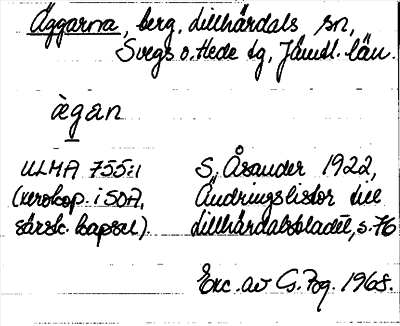 Äggarna, berg, Lillhärdals sn,
Svegs o. Hede tg, Jämtl. län.
ägan
ULMA 755:1 S. Åsander 1922,
(xerokop. i SOA, Ändringslistor till
särsk. kapsel). Lillhärdalsbladet, s. 76
Exc. av G. Fog. 1968.